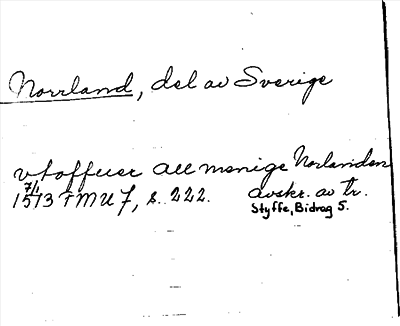 Norrland, del av Sverige
vtoffuer all menige Norlanden
7/1
1513 TMU 7, s. 222. avskr. av tr.
Styffe, Bidrag 5.